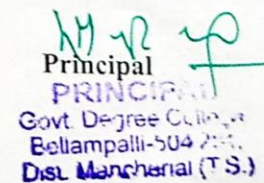 Principal
PRINCIPAL
Govt. Degree College
Bellampalli-504
Dist. Mancherial (T.S.)